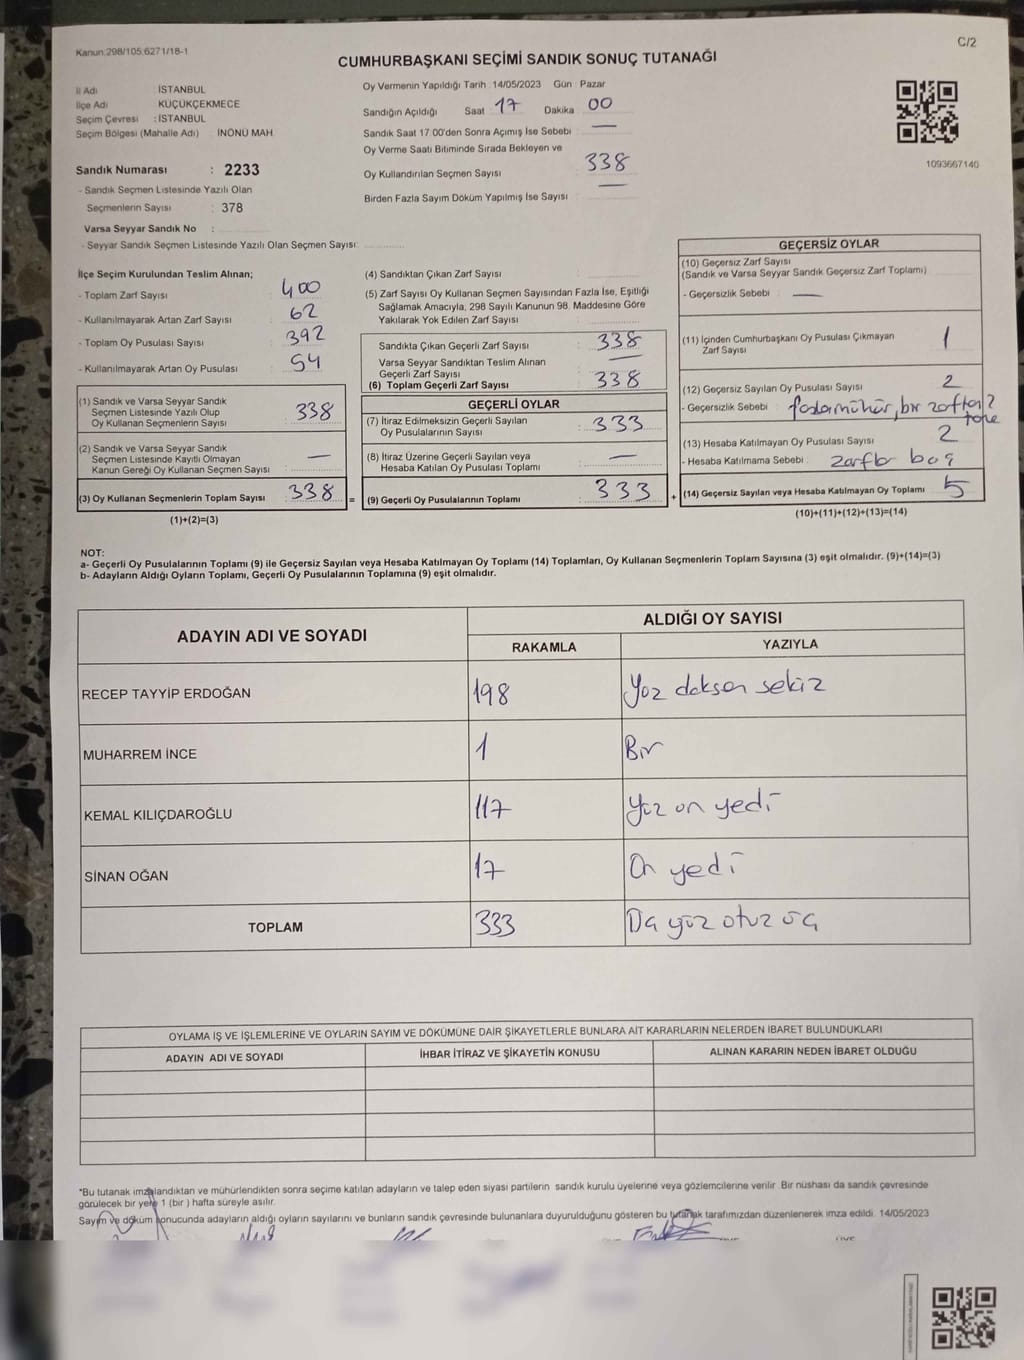 Kanun:298/105,6271/18-1
C/2
CUMHURBAŞKANI SEÇİMİ SANDIK SONUÇ TUTANAĞI
İl Adı : İSTANBUL
İlçe Adı KÜÇÜKÇEKMECE
Seçim Çevresi : İSTANBUL
Seçim Bölgesi (Mahalle Adı) : İNÖNÜ MAH.
Sandık Numarası : 2233
- Sandık Seçmen Listesinde Yazılı Olan
Seçmenlerin Sayısı : 378
Varsa Seyyar Sandık No :
- Seyyar Sandık Seçmen Listesinde Yazılı Olan Seçmen Sayısı:
Oy Vermenin Yapıldığı Tarih : 14/05/2023 Gün : Pazar
Sandığın Açıldığı Saat 17 Dakika 00
Sandık Saat 17.00'den Sonra Açımış İse Sebebi : —
Oy Verme Saati Bitiminde Sırada Bekleyen ve
Oy Kullandırılan Seçmen Sayısı : 338
Birden Fazla Sayım Döküm Yapılmış İse Sayısı : —
1093667140
İlçe Seçim Kurulundan Teslim Alınan;
- Toplam Zarf Sayısı : 400
- Kullanılmayarak Artan Zarf Sayısı : 62
- Toplam Oy Pusulası Sayısı : 392
- Kullanılmayarak Artan Oy Pusulası : 54
(1) Sandık ve Varsa Seyyar Sandık
Seçmen Listesinde Yazılı Olup
Oy Kullanan Seçmenlerin Sayısı : 338
(2) Sandık ve Varsa Seyyar Sandık
Seçmen Listesinde Kayıtlı Olmayan
Kanun Gereği Oy Kullanan Seçmen Sayısı : —
(3) Oy Kullanan Seçmenlerin Toplam Sayısı : 338 =
(1)+(2)=(3)
(4) Sandıktan Çıkan Zarf Sayısı :
(5) Zarf Sayısı Oy Kullanan Seçmen Sayısından Fazla İse, Eşitliği
Sağlamak Amacıyla, 298 Sayılı Kanunun 98. Maddesine Göre
Yakılarak Yok Edilen Zarf Sayısı :
Sandıkta Çıkan Geçerli Zarf Sayısı : 338
Varsa Seyyar Sandıktan Teslim Alınan
Geçerli Zarf Sayısı : —
(6) Toplam Geçerli Zarf Sayısı : 338
GEÇERLİ OYLAR
(7) İtiraz Edilmeksizin Geçerli Sayılan
Oy Pusulalarının Sayısı : 333
(8) İtiraz Üzerine Geçerli Sayılan veya
Hesaba Katılan Oy Pusulası Toplamı : —
(9) Geçerli Oy Pusulalarının Toplamı : 333 +
GEÇERSİZ OYLAR
(10) Geçersiz Zarf Sayısı
(Sandık ve Varsa Seyyar Sandık Geçersiz Zarf Toplamı)
- Geçersizlik Sebebi : —
(11) İçinden Cumhurbaşkanı Oy Pusulası Çıkmayan
Zarf Sayısı 1
(12) Geçersiz Sayılan Oy Pusulası Sayısı 2
- Geçersizlik Sebebi : fazla mühür, bir zarftan 2
tane
(13) Hesaba Katılmayan Oy Pusulası Sayısı 2
- Hesaba Katılmama Sebebi : zarflar boş
(14) Geçersiz Sayılan veya Hesaba Katılmayan Oy Toplamı 5
(10)+(11)+(12)+(13)=(14)
NOT:
a- Geçerli Oy Pusulalarının Toplamı (9) ile Geçersiz Sayılan veya Hesaba Katılmayan Oy Toplamı (14) Toplamları, Oy Kullanan Seçmenlerin Toplam Sayısına (3) eşit olmalıdır. (9)+(14)=(3)
b- Adayların Aldığı Oyların Toplamı, Geçerli Oy Pusulalarının Toplamına (9) eşit olmalıdır.
ADAYIN ADI VE SOYADI ALDIĞI OY SAYISI
RAKAMLA YAZIYLA
RECEP TAYYİP ERDOĞAN 198 Yüz doksan sekiz
MUHARREM İNCE 1 Bir
KEMAL KILIÇDAROĞLU 117 Yüz on yedi
SİNAN OĞAN 17 On yedi
TOPLAM 333 Üç yüz otuz üç
OYLAMA İŞ VE İŞLEMLERİNE VE OYLARIN SAYIM VE DÖKÜMÜNE DAİR ŞİKAYETLERLE BUNLARA AİT KARARLARIN NELERDEN İBARET BULUNDUKLARI
ADAYIN ADI VE SOYADI İHBAR İTİRAZ VE ŞİKAYETİN KONUSU ALINAN KARARIN NEDEN İBARET OLDUĞU
*Bu tutanak imzalandıktan ve mühürlendikten sonra seçime katılan adayların ve talep eden siyasi partilerin sandık kurulu üyelerine veya gözlemcilerine verilir. Bir nüshası da sandık çevresinde
görülecek bir yere 1 (bir ) hafta süreyle asılır.
Sayım ve döküm sonucunda adayların aldığı oyların sayılarını ve bunların sandık çevresinde bulunanlara duyurulduğunu gösteren bu tutanak tarafımızdan düzenlenerek imza edildi. 14/05/2023